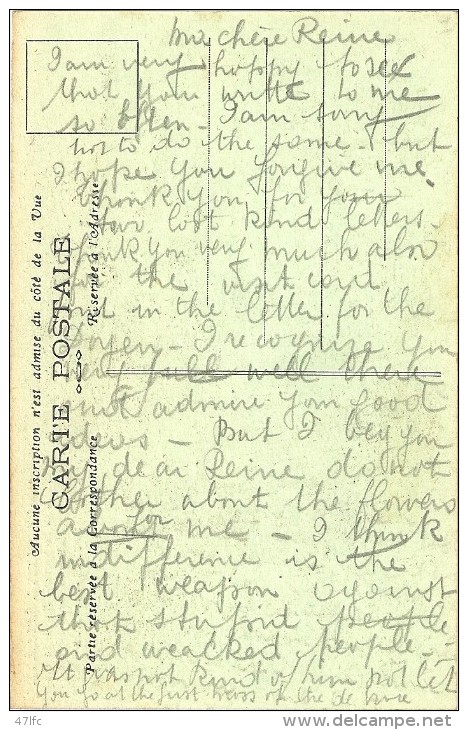 ma chère Reine
I am very happy to see
that you write to me
so often - I am sorry
not to do the same - but
I hope you forgive me.
Thank you for your
your last kind letters
Thank you very much also
for the visit card
and in the letter for the
Doyen - I recognize you
very full well there
and admire your good
ideas - But I beg you
my dear Reine do not
bother about the flowers
for me - I think
indifference is the
best weapon against
that stupid people
and weacked people -
It was not kind of him not let
you go at the first mass
Aucune inscription n'est admise du côté de la Vue
CARTE POSTALE
Réservée à l'Adresse
Partie réservée à la Correspondance
47lfc
delcampe.net